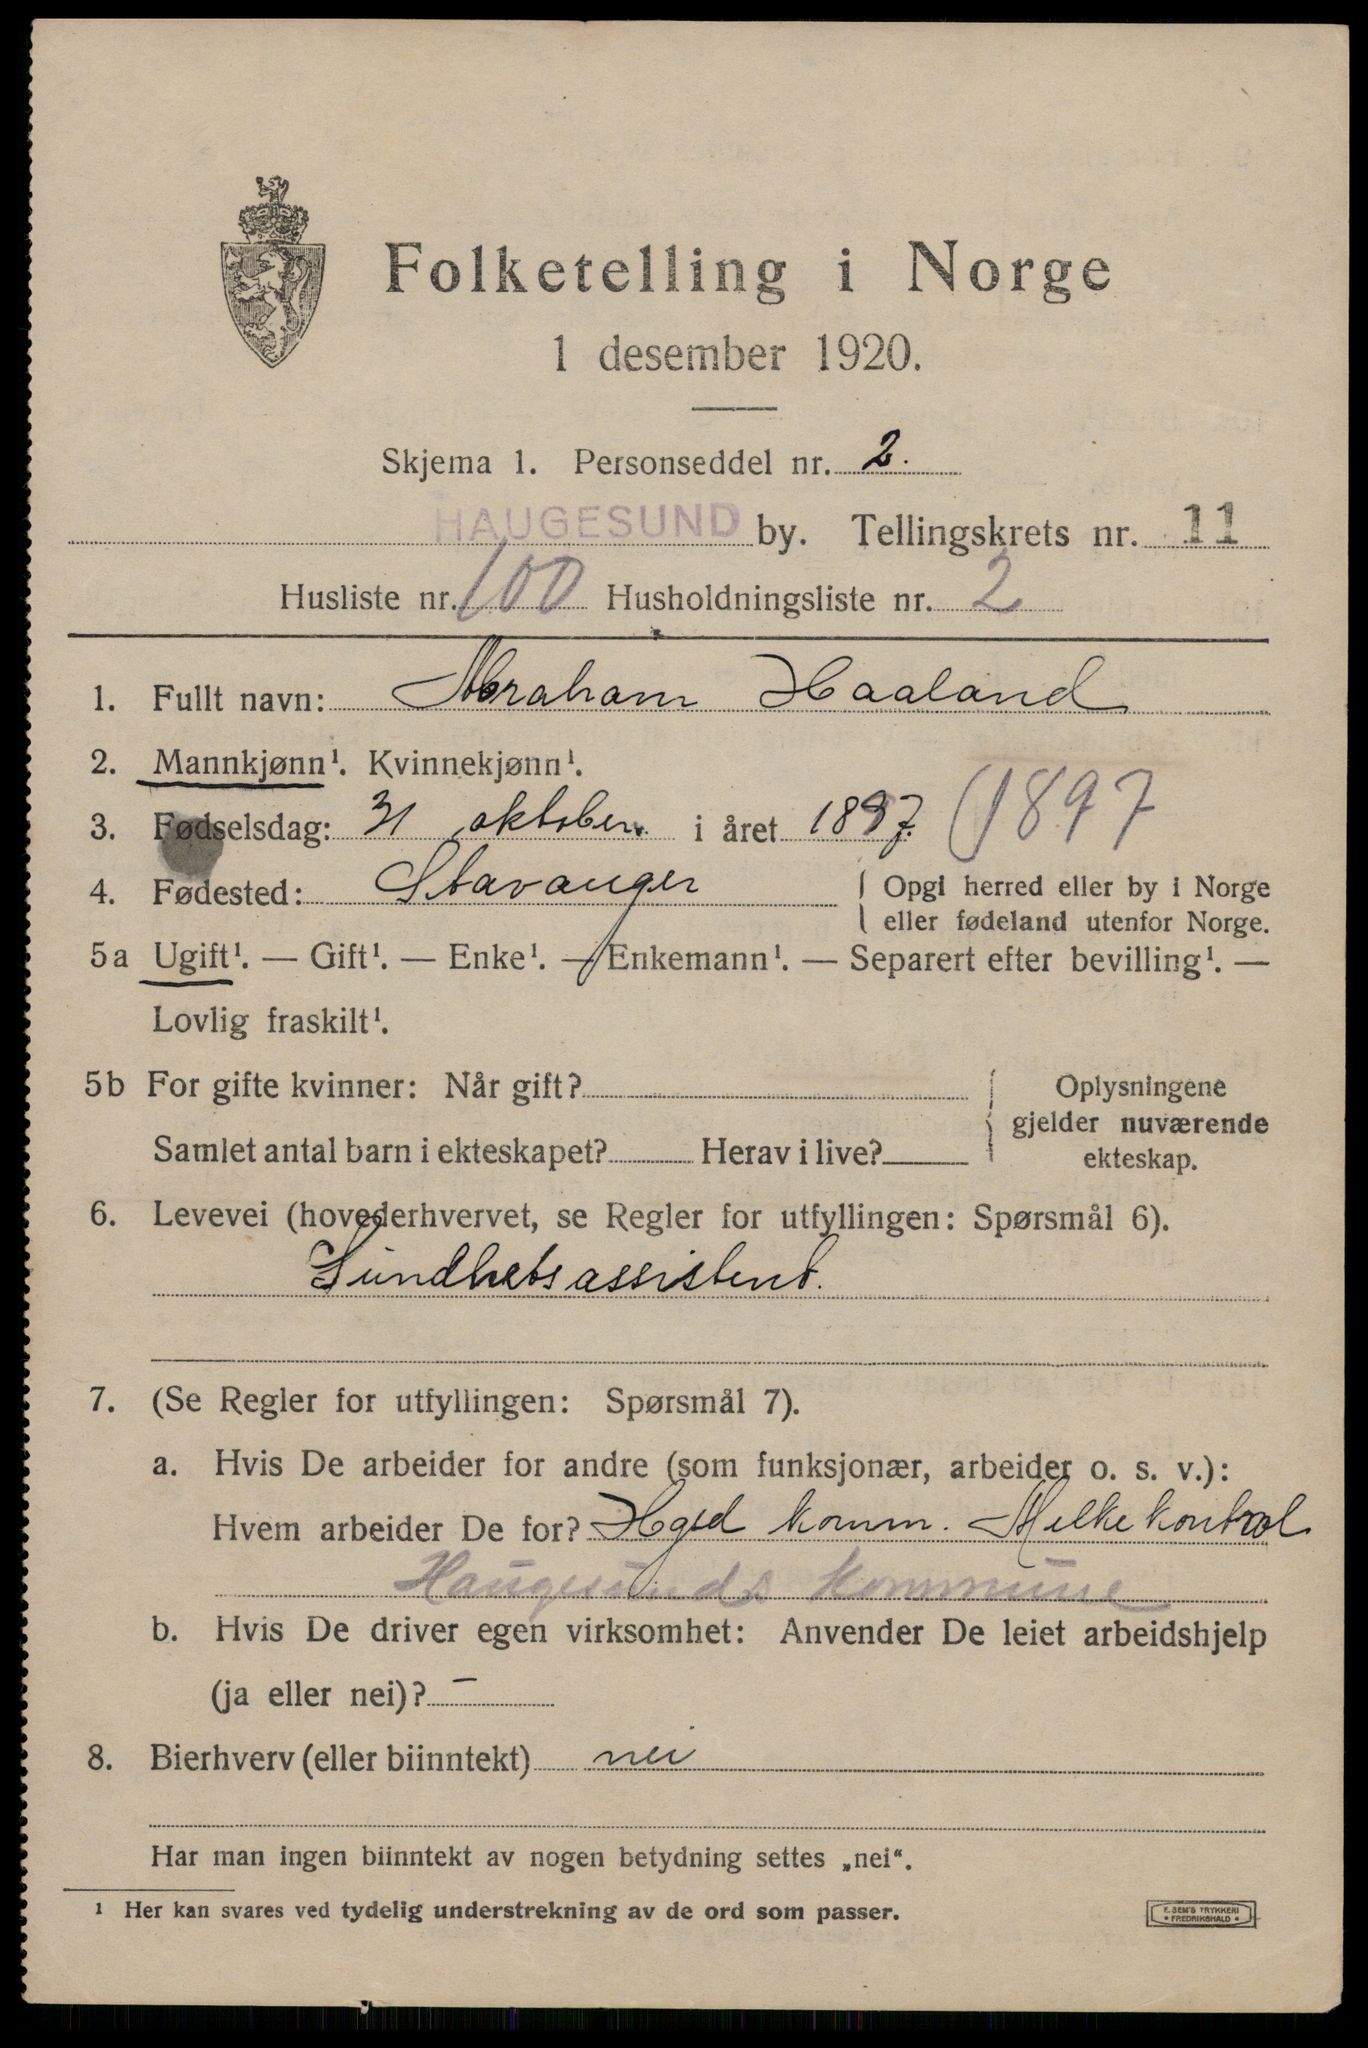 Folketelling i Norge
1 desember 1920.
Skjema 1. Personseddel nr. 2.
HAUGESUND by. Tellingskrets nr. 11
Husliste nr. 100 Husholdningsliste nr. 2
1. Fullt navn: Abraham Haaland
2. Mannkjønn¹. Kvinnekjønn¹.
3. Fødselsdag: 31 oktober. i året 1897. (1897
4. Fødested: Stavanger { Opgi herred eller by i Norge
eller fødeland utenfor Norge.
5a Ugift¹. — Gift¹. — Enke¹. — Enkemann¹. — Separert efter bevilling¹. —
Lovlig fraskilt¹.
5b For gifte kvinner: Når gift? { Oplysningene
gjelder nuværende
Samlet antal barn i ekteskapet? Herav i live? ekteskap.
6. Levevei (hovederhvervet, se Regler for utfyllingen: Spørsmål 6).
Sundhetsassistent.
7. (Se Regler for utfyllingen: Spørsmål 7).
a. Hvis De arbeider for andre (som funksjonær, arbeider o. s. v.):
Hvem arbeider De for? Hgsd komm. Melkekontrol
Haugesunds kommune
b. Hvis De driver egen virksomhet: Anvender De leiet arbeidshjelp
(ja eller nei)? —
8. Bierhverv (eller biinntekt) nei
Har man ingen biinntekt av nogen betydning settes „nei“.
¹ Her kan svares ved tydelig understrekning av de ord som passer.
E. SEM'S TRYKKERI
• FREDRIKSHALD •